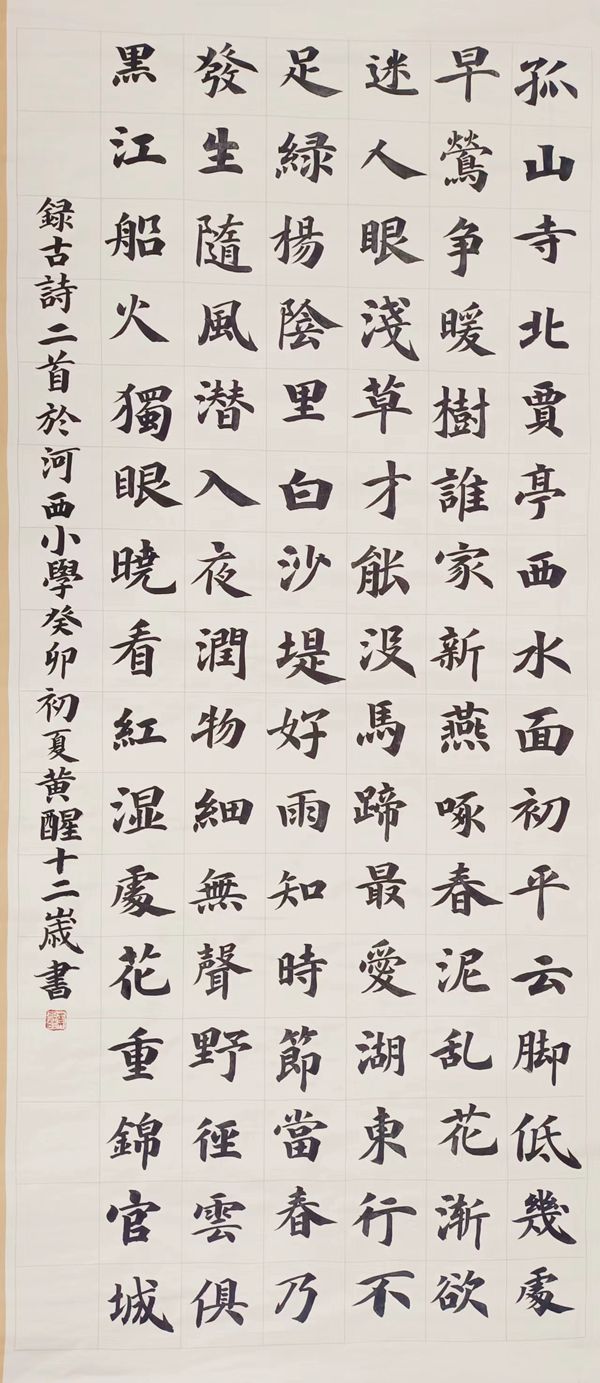 孤山寺北賈亭西水面初平云脚低幾處
早鶯争暖樹誰家新燕啄春泥乱花渐欲
迷人眼淺草才能没馬蹄最愛湖東行不
足緑楊陰里白沙堤好雨知時節當春乃
發生隨風潜入夜潤物細無聲野徑雲俱
黑江船火獨眼曉看紅湿處花重錦官城
録古詩二首於河西小學癸卯初夏黄醒十二歲書